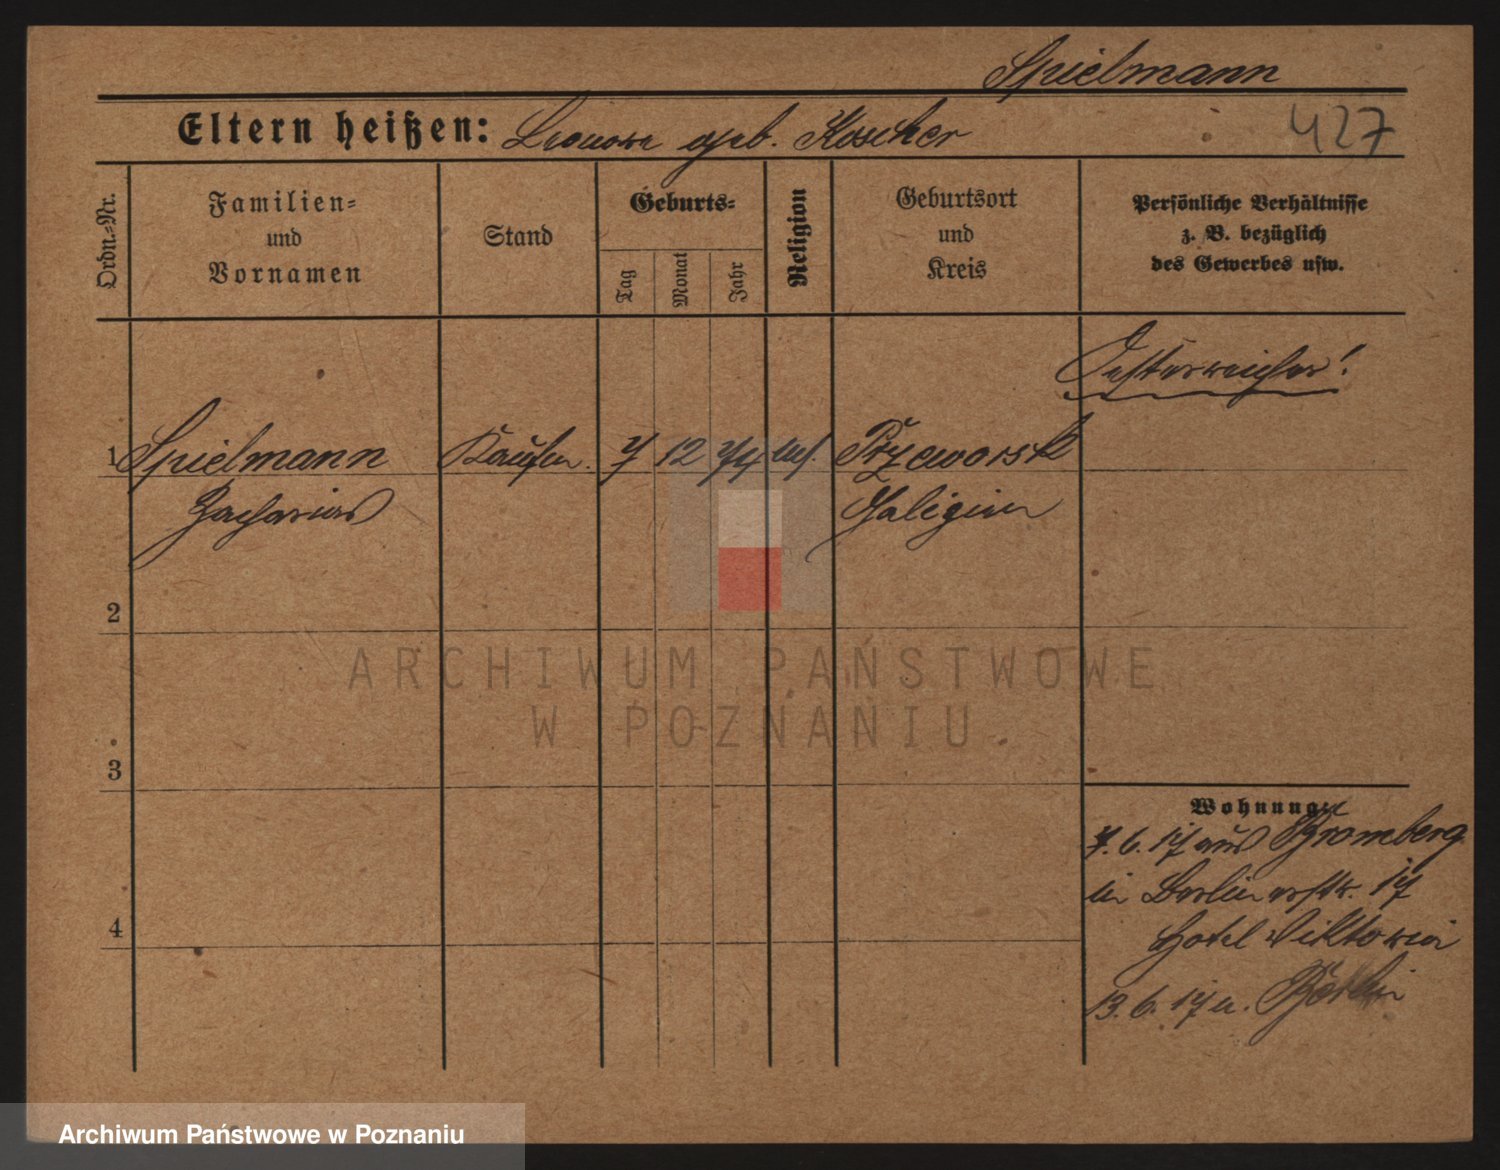 Spielmann
Eltern heißen: Leonore geb. Koscher
427
Ordn.-Nr.
Familien-
und
Vornamen
Stand
Geburts-
Tag
Monat
Jahr
Religion
Geburtsort
und
Kreis
Persönliche Verhältnisse
z. B. bezüglich
des Gewerbes usw.
Oesterreicher!
1 Spielmann Kaufm. 7 12 74 Przeworsk
Zacharias Galizien
2
3
4
Wohnung
7. 6. 17 aus Bromberg
in Berlinerstr. 17
Hotel Viktoria
13. 6. 17 n. Berlin
ARCHIWUM PAŃSTWOWE
W POZNANIU
Archiwum Państwowe w Poznaniu